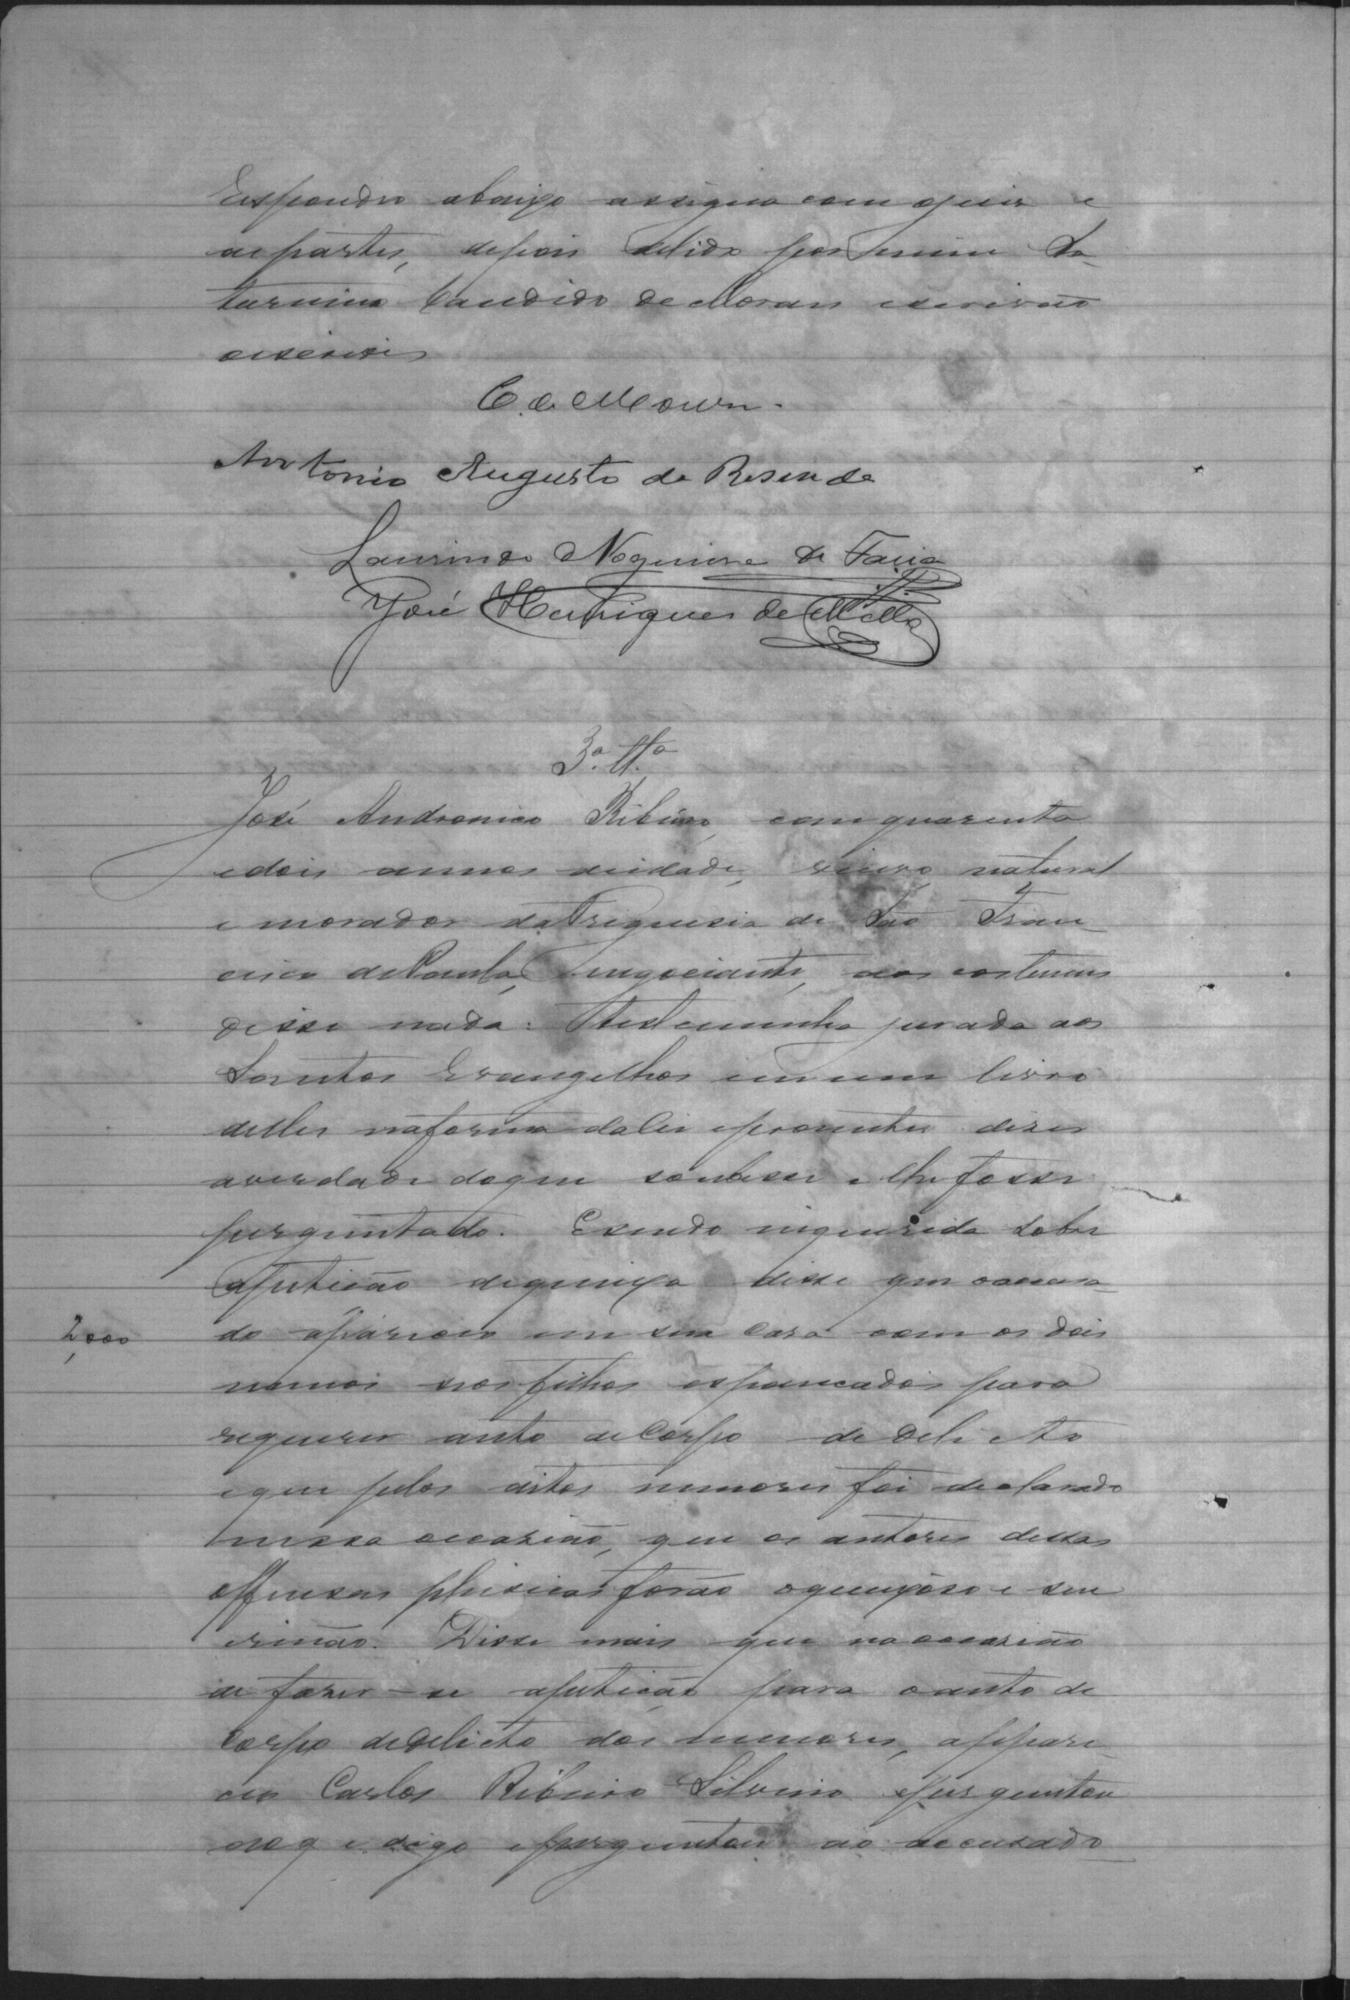 abaixo assigna com o juiz e
as partes, depois de lido por mim Sa-
turnino Candido de Moraes escrivão
o escrevi
C. de Moura.
Antonio Augusto de Resende
Laurindo Nogueira de Faria
José Henriques de Mello
3ª Tta
José Andronico Ribeiro, com quarenta
e dois annos de idade, viuvo natural
e morador da Freguesia de São Fran-
cisco de Paula, negociante, aos costumes
disse nada: Testemunha jurada aos
Santos Evangelhos em um livro
delles na forma da lei e prometteu dizer
a verdade do que soubesse e lhe fosse
perguntado. E sendo inquerida sobre
a petição de queixa disse que o accusa-
do appareceu em sua casa com os dois
menores seos filhos espancados para
requerer auto de Corpo de delicto
e que pelos ditos menores foi declarado
nessa occasião, que os autores dessas
offensas phisicas forão o queixoso e seu
irmão. Disse mais que na occasião
de fazer-se a petição para o auto de
Corpo de delicto dos menores, appare-
ceu Carlos Ribeiro Silverio e perguntou
digo e perguntou ao accusado
2,000